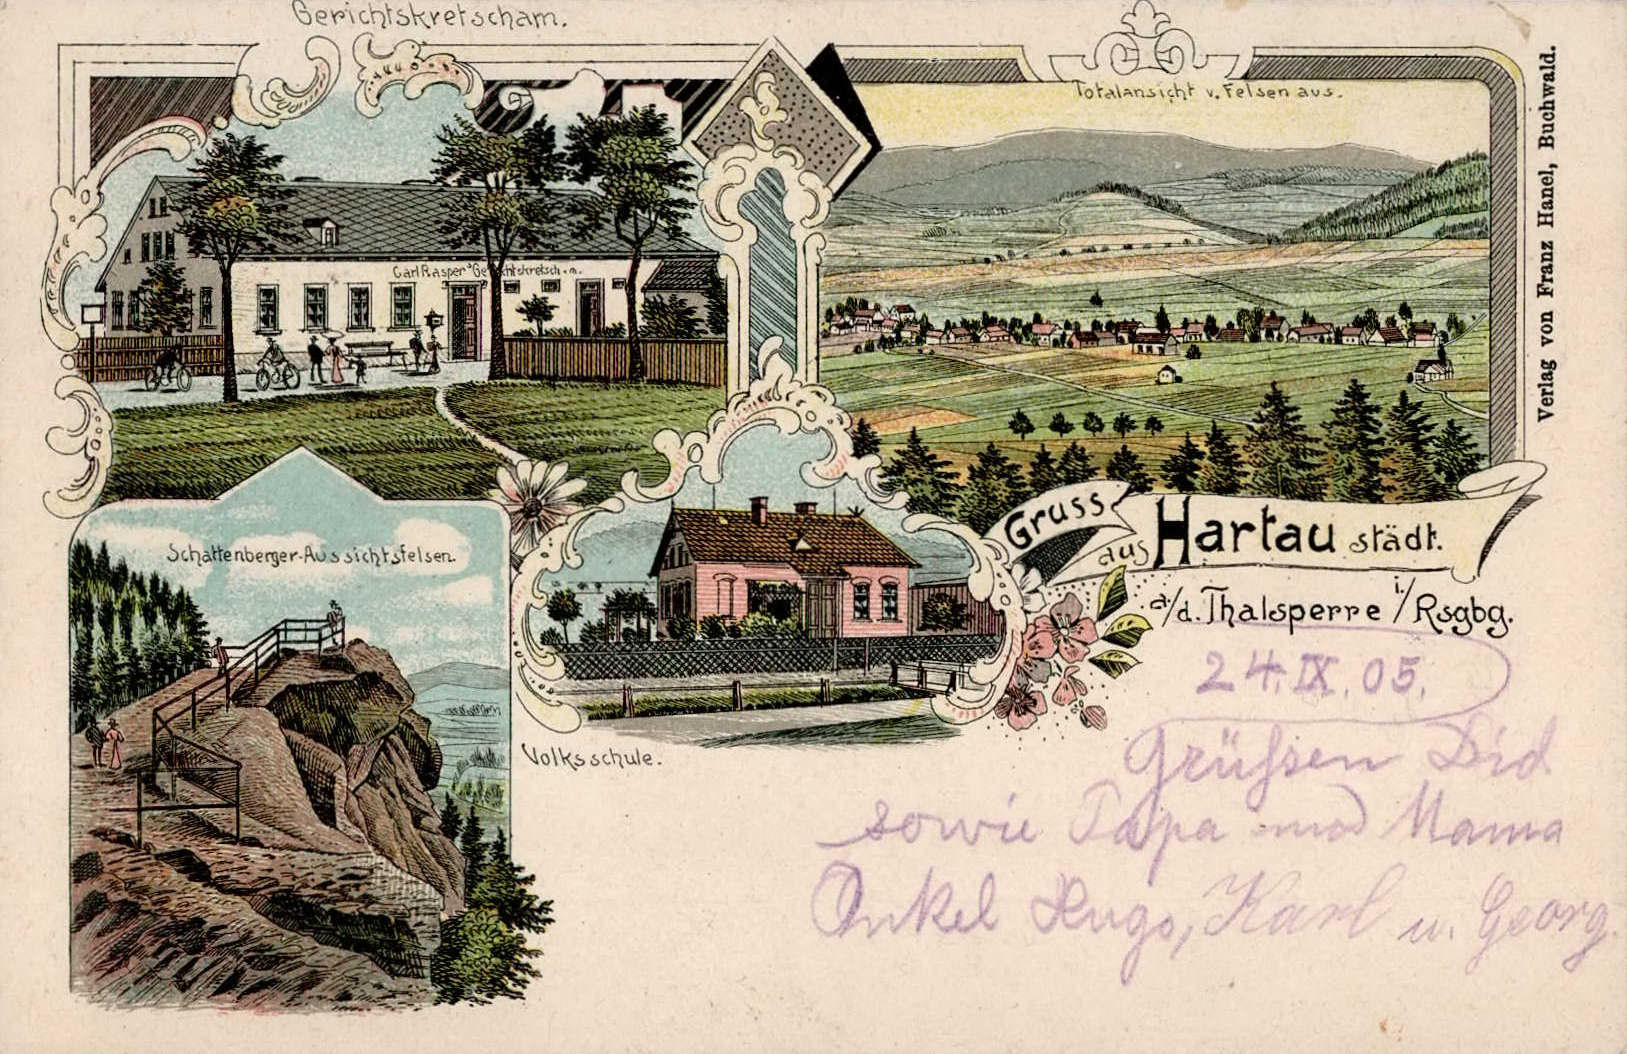 Gerichtskretscham.
Totalansicht v. Felsen aus.
Verlag von Franz Hanel, Buchwald.
Carl Rasper's Gerichtskretsch.m.
Schattenberger-Aussichtsfelsen.
Gruss
aus Hartau städt.
a/d. Thalsperre i/Rsgbg.
Volksschule.
24.IX.05.
Grüßen Did
sowie Papa und Mama
Onkel Hugo, Karl u. Georg.